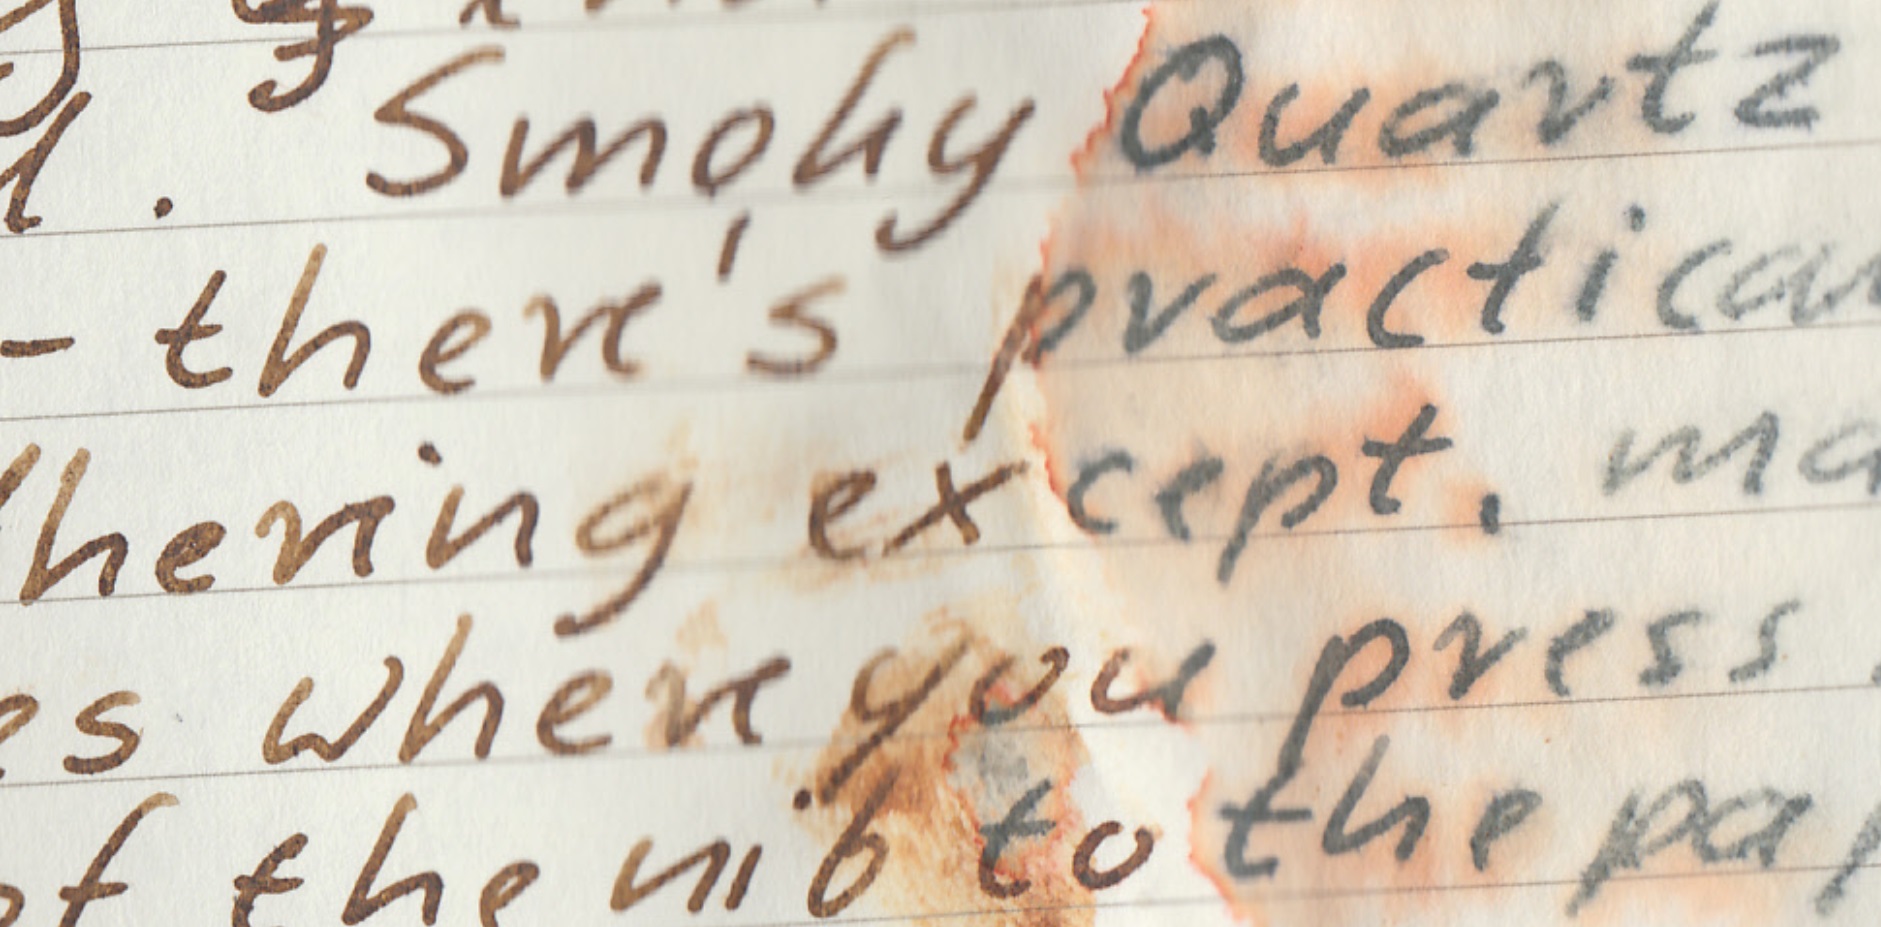 . Smoky Quartz
- there's practical
hering except, ma
es where you press
of the nib to the pap